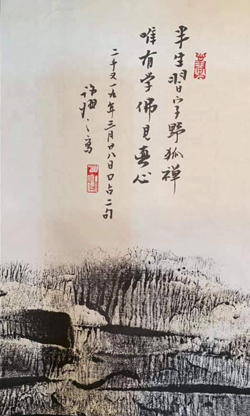 半生習字野狐禪
唯有学佛見真心
二千又一九年三月廿八日口占二句